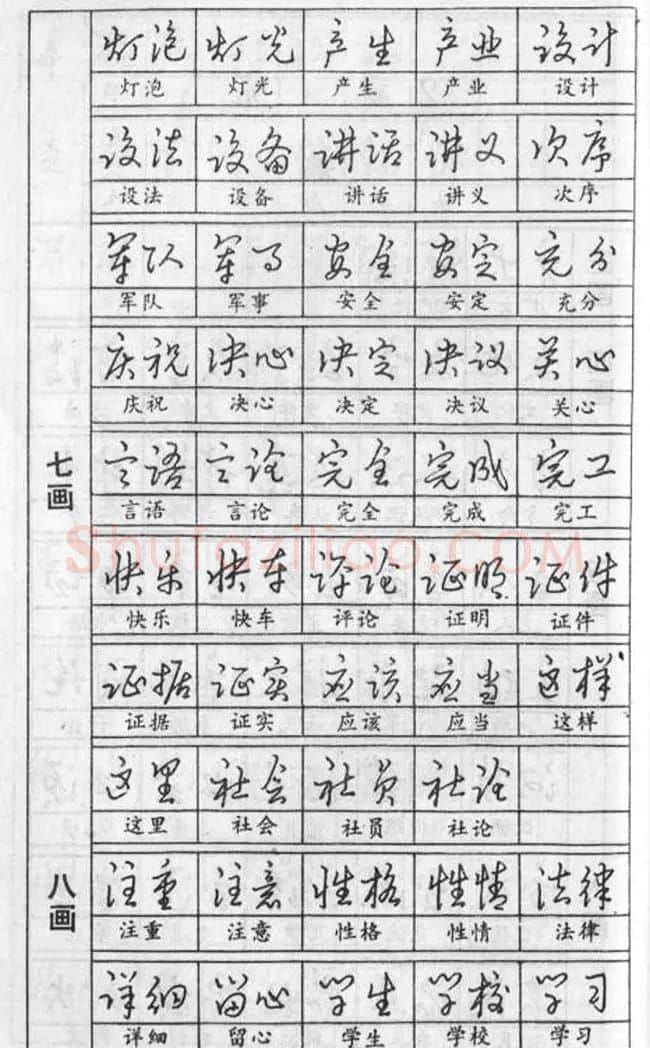 灯泡 灯光 产生 产业 设计
灯泡 灯光 产生 产业 设计
设法 设备 讲话 讲义 次序
设法 设备 讲话 讲义 次序
军队 军事 安全 安定 充分
军队 军事 安全 安定 充分
庆祝 决心 决定 决议 关心
庆祝 决心 决定 决议 关心
七画
言语 言论 完全 完成 完工
言语 言论 完全 完成 完工
Shufaziliao.COM
快乐 快车 评论 证明 证件
快乐 快车 评论 证明 证件
证据 证实 应该 应当 这样
证据 证实 应该 应当 这样
这里 社会 社员 社论
这里 社会 社员 社论
八画
注重 注意 性格 性情 法律
注重 注意 性格 性情 法律
详细 留心 学生 学校 学习
详细 留心 学生 学校 学习